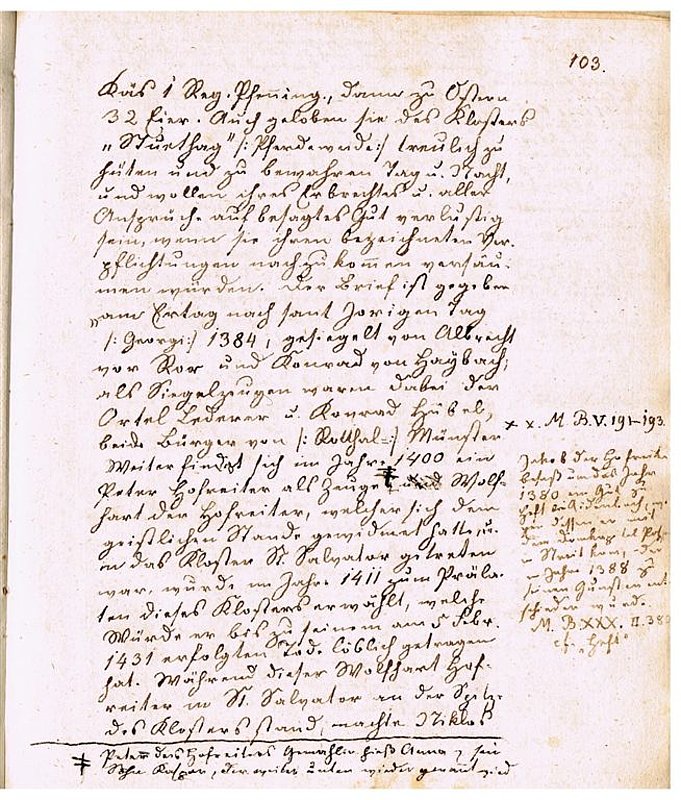 103.
Käs 1 Reg. Pfenning., dann zu Ostern
32 Eier. Auch geloben sie des Klosters
„Stuethag" /: Pferdeweide :/ treulich zu
hüten und zu bewahren Tag u. Nacht,
und wollen ihres Erbrechtes u. aller
Ansprüche auf besagtes Gut verlustig
sein, wenn sie ihren bezeichneten Ver-
pflichtungen nachzukommen versäu-
men würden. Der Brief ist gegeben
„am Ertag nach sant Jorigen Tag
/: Georgi :/ 1384, gesiegelt von Albrecht
von Ror und Konrad von Haybach,
als Siegelzeugen waren dabei der
Ortel Lederer u. Konrad Hübel,
beide Bürger von /: Rotthal= :/ Münster
x x. M. B. V. 191-193.
Weiter findet sich im Jahre 1400 ein
Peter Hofreiter als Zeuge Wolf-
hart der Hofreiter, welcher sich dem
geistlichen Stande gewidmet hatte, u.
in das Kloster St. Salvator getreten
war, wurde im Jahre 1411 zum Präla-
ten dieses Klosters erwählt, welche
Würde er bis zu seinem am 5 Febr.
1431 erfolgten Tode löblich getragen
hat. Während dieser Wolfhart Hof-
reiter in St. Salvator an der Spitze
des Klosters stand, machte Niklos
Jakob der Hofreiter
besaß um das Jahr
1380 ein Gut
dessen er mit
dem Domkapitel
in Streit kam, der
im Jahre 1388 zu
seinen Gunsten ent-
schieden wurde.
M. B. XXX. II. 38
cf. „Hecht"
Peter des Hofreiters Gemahlin hieß Anna, sein
Sohn Kaspar, der weiter unten wieder genannt wird